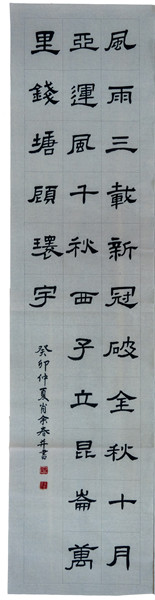 風雨三載新冠破金秋十月
亞運風千秋西子立昆崙萬
里錢塘顾環宇
癸卯仲夏肖余春并書